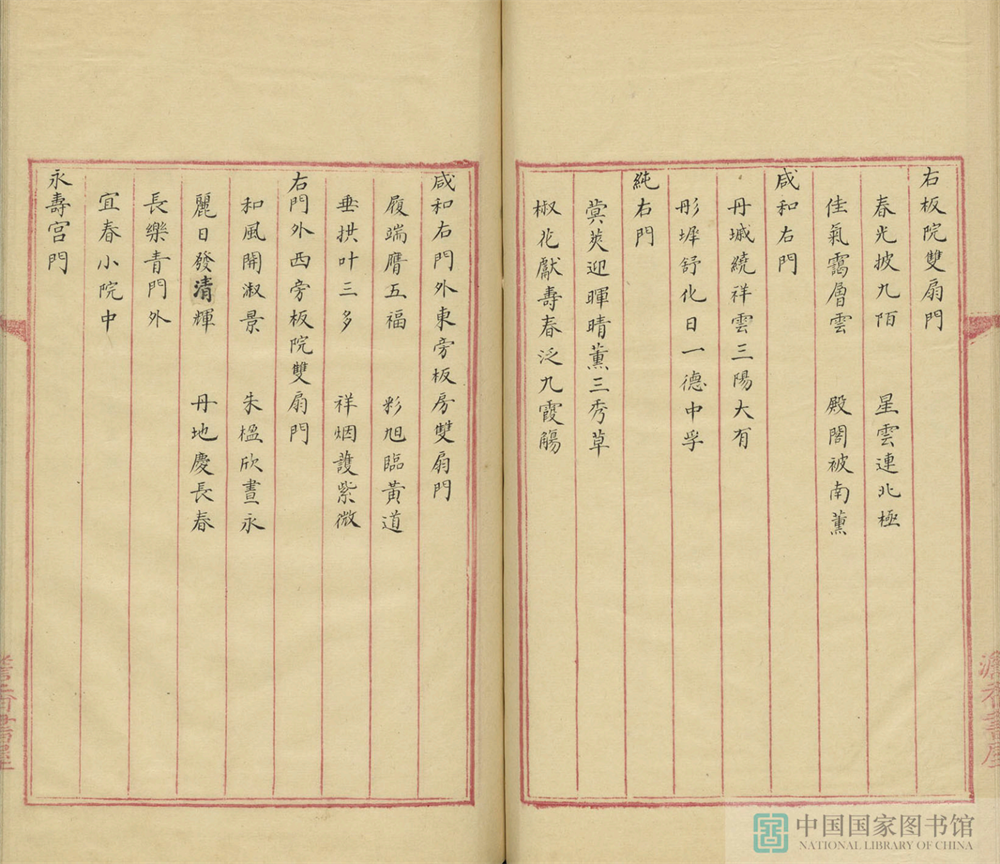 右板院雙扇門
春光披九陌 星雲連北極
佳氣靄層雲 殿閣被南薰
咸和右門
丹墄繞祥雲三陽大有
彤墀舒化日一德中孚
純右門
蓂莢迎暉晴薰三秀草
椒花獻壽春泛九霞觴
咸和右門外東旁板房雙扇門
履端膺五福 彩旭臨黃道
垂拱叶三多 祥烟護紫微
右門外西旁板院雙扇門
和風開淑景 朱楹欣晝永
麗日發清輝 丹地慶長春
長樂青門外
宜春小院中
永壽宮門
中国国家图书馆
NATIONAL LIBRARY OF CHINA